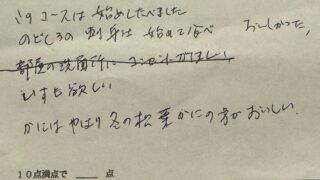 コースは 始めてたべました
のどぐろの 刺身は 始めて食べ おいしかった。
部屋の洗面所に コンセントがほしい
いすも欲しい
かには やはり 冬の松葉かにの方がおいしい.
10点満点で ____ 点